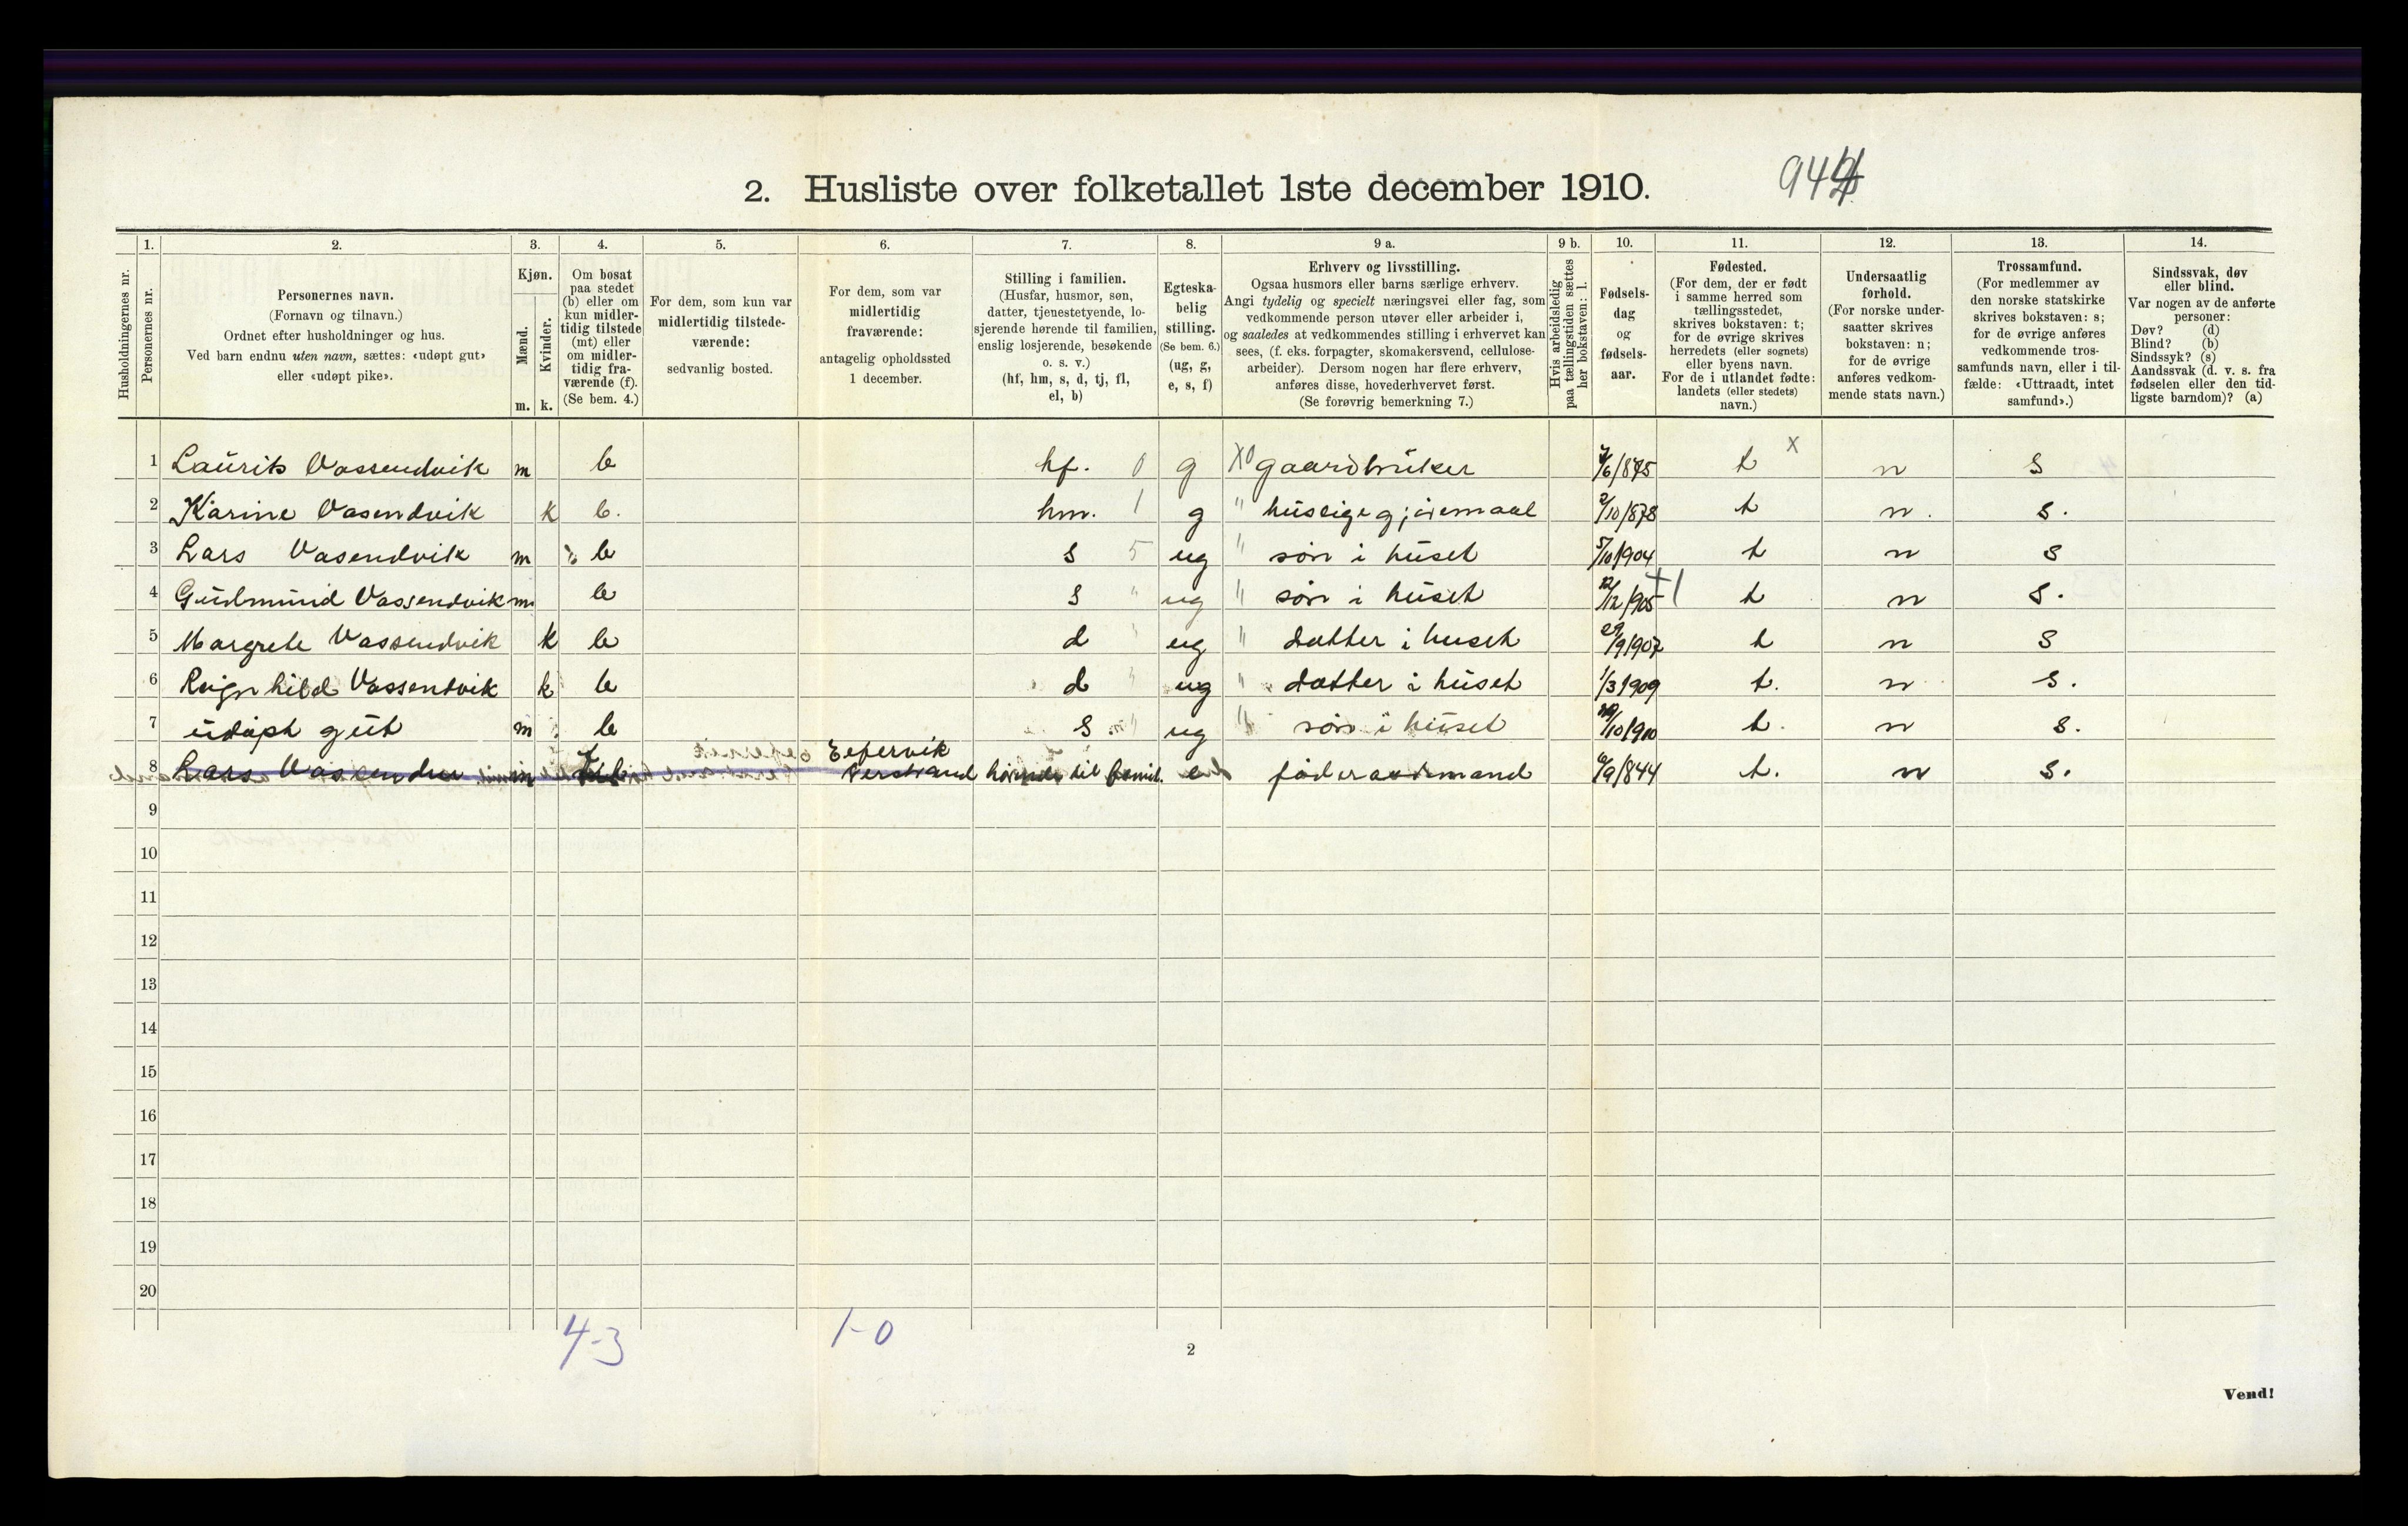 944
2. Husliste over folketallet 1ste december 1910.
Husholdningernes nr.
1. Personernes nr.
2. Personernes navn.
(Fornavn og tilnavn.)
Ordnet efter husholdninger og hus.
Ved barn endnu uten navn, sættes: «udøpt gut»
eller «udøpt pike».
3. Kjøn.
Mænd. m.
Kvinder. k.
4. Om bosat
paa stedet
(b) eller om
kun midler-
tidig tilstede
(mt) eller
om midler-
tidig fra-
værende (f).
(Se bem. 4.)
5. For dem, som kun var
midlertidig tilstede-
værende:
sedvanlig bosted.
6. For dem, som var
midlertidig
fraværende:
antagelig opholdssted
1 december.
7. Stilling i familien.
(Husfar, husmor, søn,
datter, tjenestetyende, lo-
sjerende hørende til familien,
enslig losjerende, besøkende
o. s. v.)
(hf, hm, s, d, tj, fl,
el, b)
8. Egteska-
belig
stilling.
(Se bem. 6.)
(ug, g,
e, s, f)
9 a. Erhverv og livsstilling.
Ogsaa husmors eller barns særlige erhverv.
Angi tydelig og specielt næringsvei eller fag, som
vedkommende person utøver eller arbeider i,
og saaledes at vedkommendes stilling i erhvervet kan
sees, (f. eks. forpagter, skomakersvend, cellulose-
arbeider). Dersom nogen har flere erhverv,
anføres disse, hovederhvervet først.
(Se forøvrig bemerkning 7.)
9 b. Hvis arbeidsledig
paa tællingstiden sættes
her bokstaven: l.
10. Fødsels-
dag
og
fødsels-
aar.
11. Fødested.
(For dem, der er født
i samme herred som
tællingsstedet,
skrives bokstaven: t;
for de øvrige skrives
herredets (eller sognets)
eller byens navn.
For de i utlandet fødte:
landets (eller stedets)
navn.)
12. Undersaatlig
forhold.
(For norske under-
saatter skrives
bokstaven: n;
for de øvrige
anføres vedkom-
mende stats navn.)
13. Trossamfund.
(For medlemmer av
den norske statskirke
skrives bokstaven: s;
for de øvrige anføres
vedkommende tros-
samfunds navn, eller i til-
fælde: «Uttraadt, intet
samfund».)
14. Sindssvak, døv
eller blind.
Var nogen av de anførte
personer:
Døv? (d)
Blind? (b)
Sindssyk? (s)
Aandssvak (d. v. s. fra
fødselen eller den tid-
ligste barndom)? (a)
1 Laurits Vassendvik m b hf. 0 g X0 gaardbruker 7/6/875 t x n s
2 Karine Vasendvik k b. hm. 1 g " huslige gjøremaal 2/10/878 t n. s.
3 Lars Vasendvik m b s 5 ug " søn i huset 5/10/904 t n s
4 Gudmund Vassendvik m b s " ug " søn i huset 12/12/905 t n s.
5 Margrete Vassendvik k b d " ug " datter i huset 29/9/907 t n s
6 Reignhild Vassendvik k b d " ug " datter i huset 1/3/909 t. n s.
7 udøpt gut m b s " ug " søn i huset 29/10/910 t. n s.
8 Lars m f Nerstrand hørende til famil. e føderaadsmand 6/9/844 t. n s.
9
10
11
12
13
14
15
16
17
18
19
20
4-3 1-0
2
Vend!